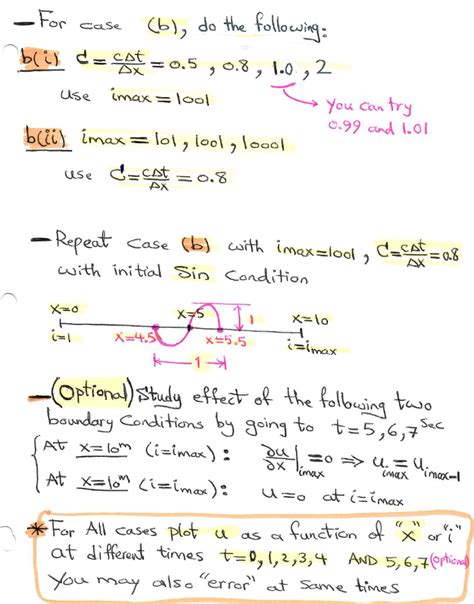 — For case (b), do the following:
b(i) C = cΔt/Δx = 0.5, 0.8, 1.0, 2
use imax = 1001
You can try
0.99 and 1.01
b(ii) imax = 101, 1001, 10001
use C = cΔt/Δx = 0.8
— Repeat Case (b) with imax=1001, C=cΔt/Δx=0.8
with initial Sin Condition
x=0 x=5 1 x=10
i=1 x=4.5 x=5.5 i=imax
1
— (Optional) Study effect of the following two
boundary Conditions by going to t=5,6,7 sec
{ At x=10m (i=imax): ∂u/∂x|imax =0 ⇒ uimax = uimax-1
At x=10m (i=imax): u=0 at i=imax
* For All cases plot u as a function of "x" or "i"
at different times t=0,1,2,3,4 AND 5,6,7 (optional)
You may also "error" at same times